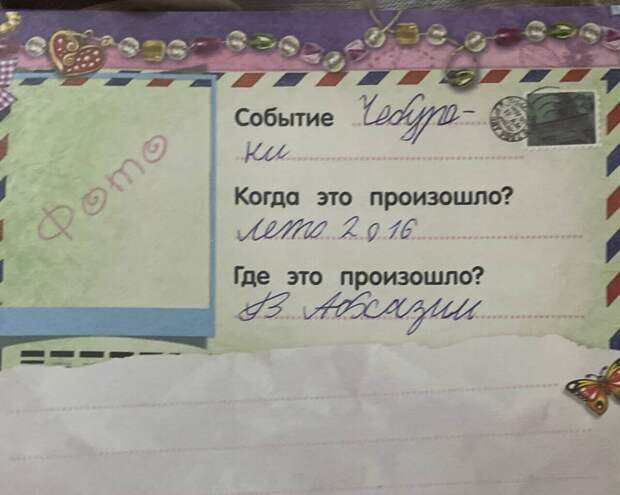 Фото
Событие Чебура-
ки
Когда это произошло?
лето 2016
Где это произошло?
В Абхазии